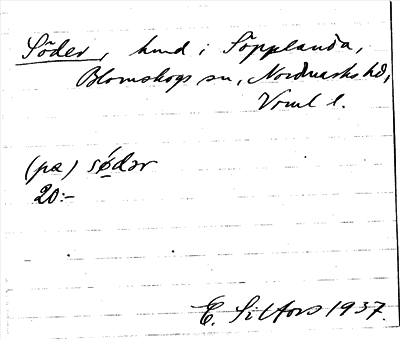 Söder, hmd i Töpplanda,
Blomskogs sn, Nordmarks hd,
Vrml l.
(pa) södər
20:-
E. Silfors 1937.